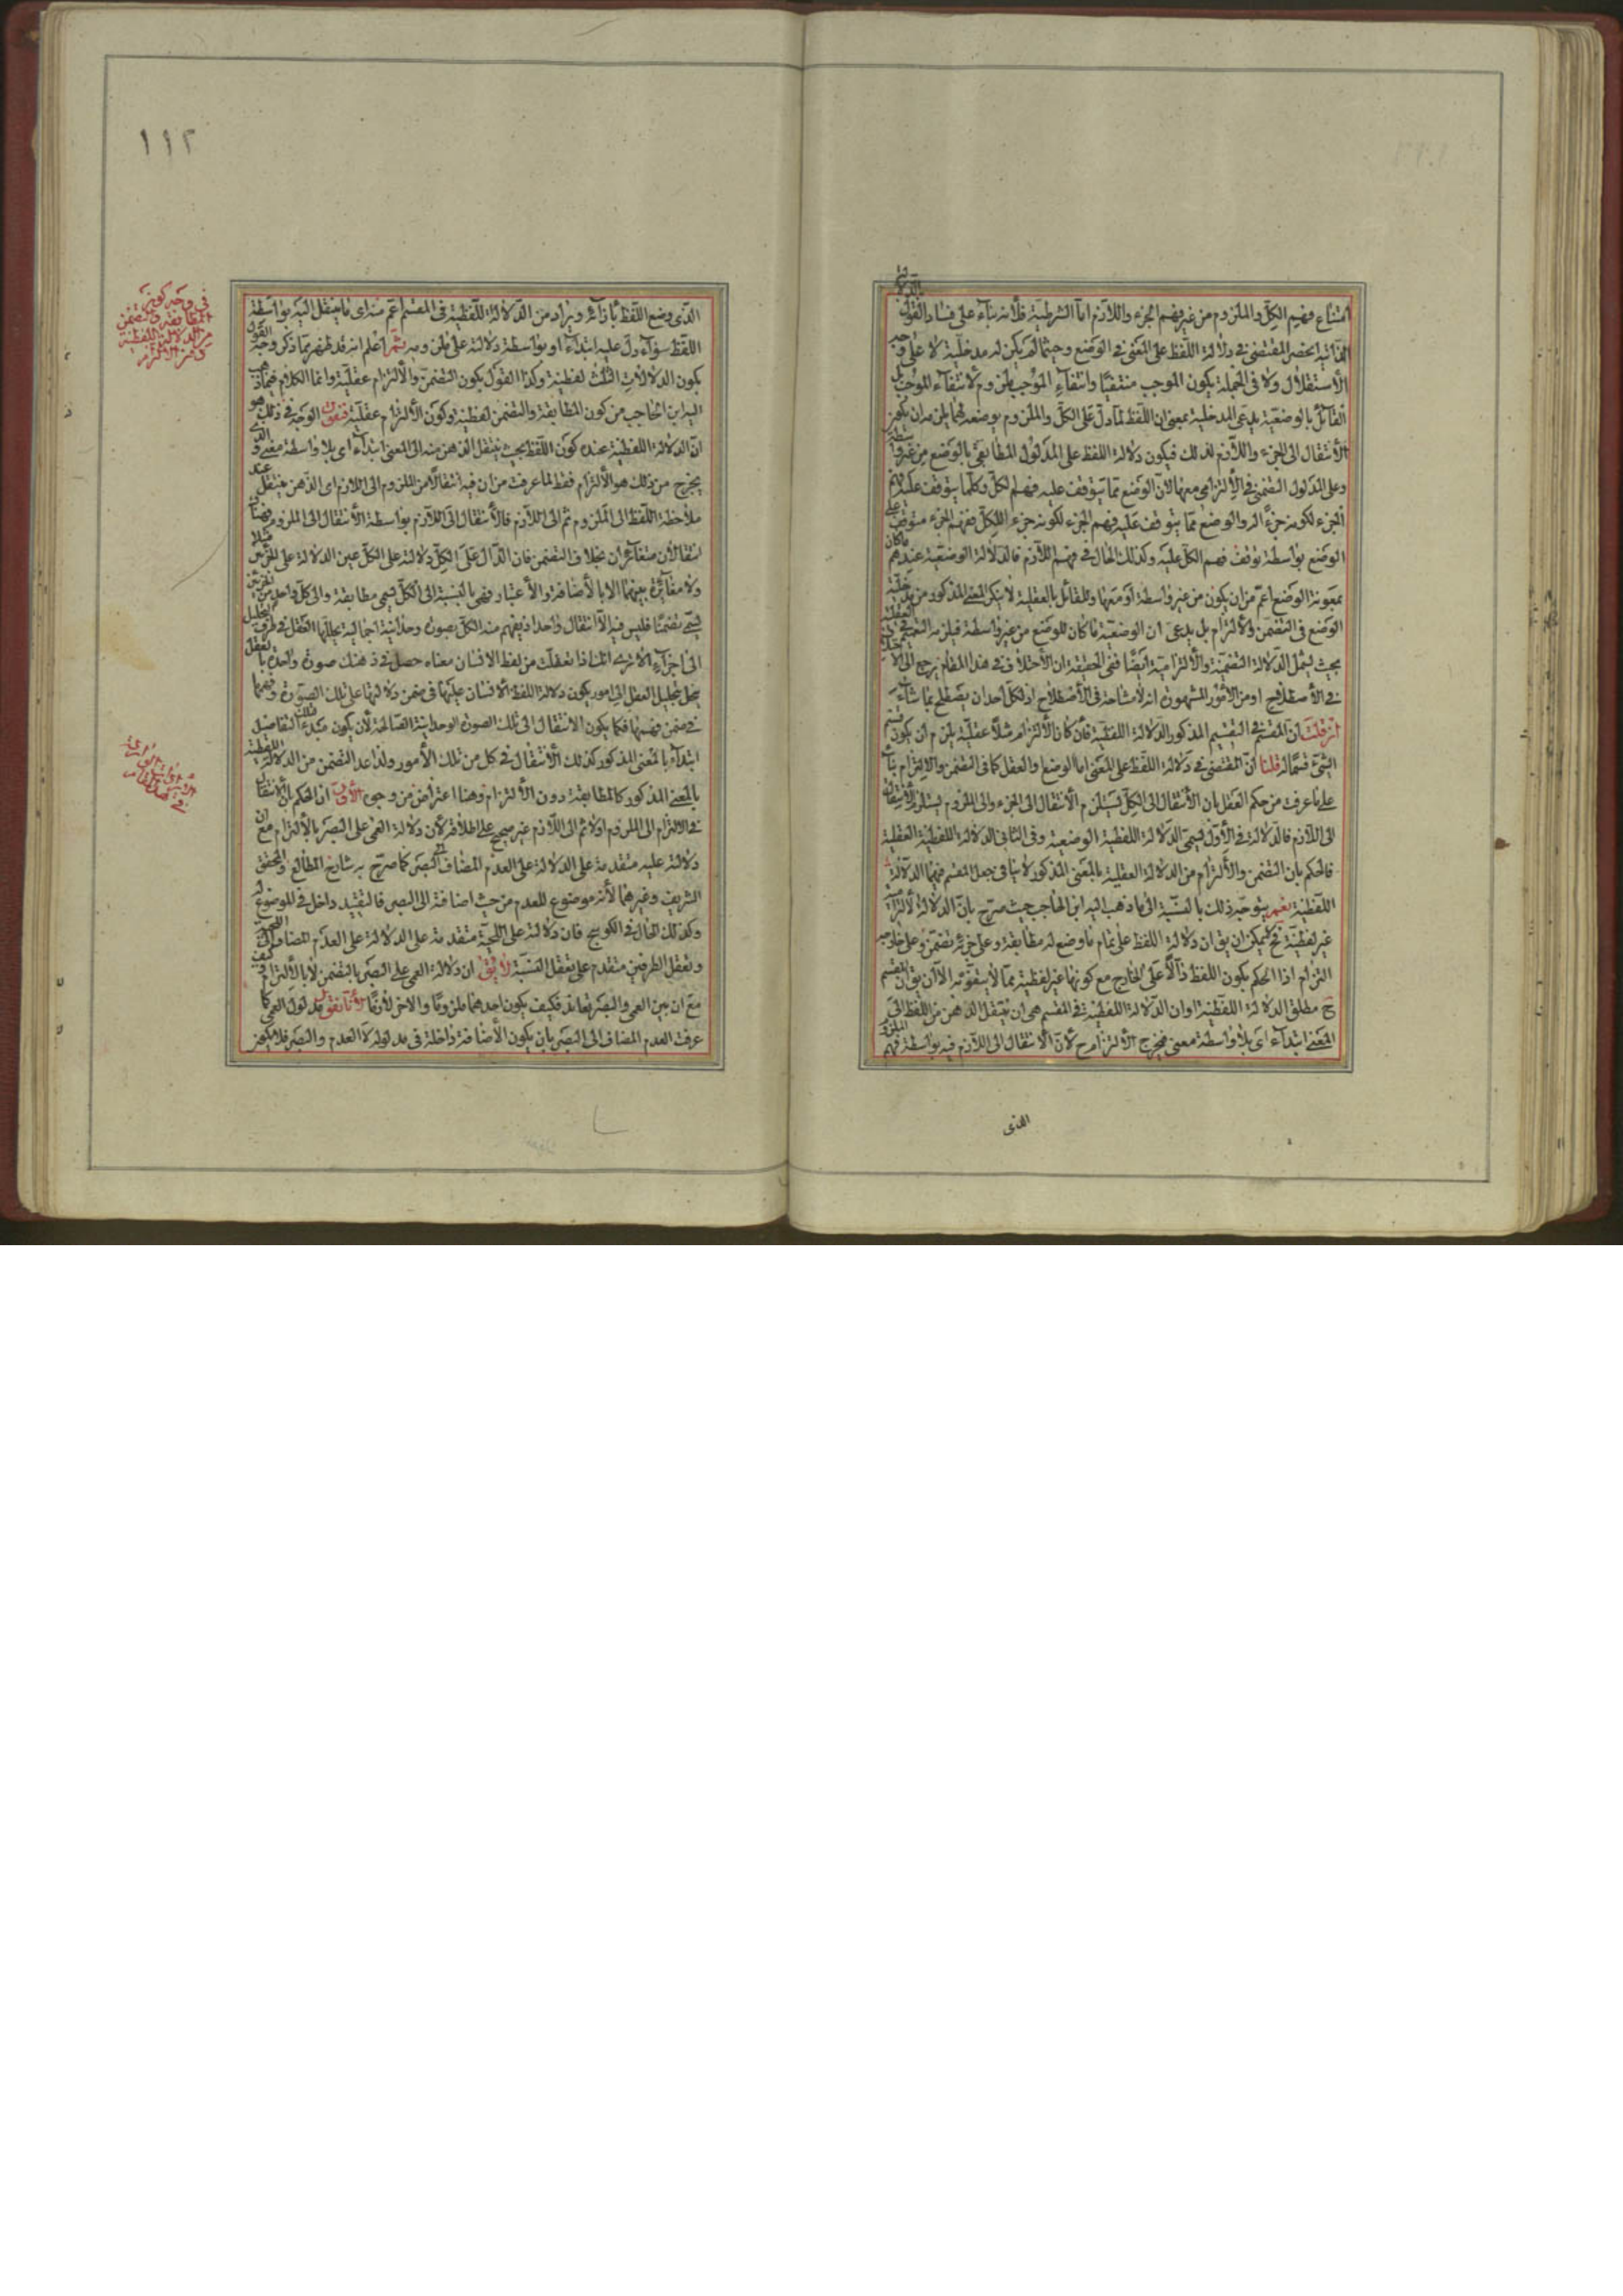 امتناع فهم الكل والملزوم من غير فهم الجزء واللازم اما الشرطية فلانه بناء على فساد القول
الذاتية انحصر المقتضى فى دلالة اللفظ على المعنى فى الوضع وحيثما لم يكن له مدخلية لا على وجه
الاستقلال ولا فى الجملة يكون الموجب منتفيا وانتفاء الموجب ملزوم لانتفاء الموجب
القائل بالوضعية يدعى المدخلية بمعنى ان اللفظ لما دل على الكل والملزوم بوضعه لهما يلزمه ان يكون
الانتقال الى الجزء واللازم لذلك فيكون دلالة اللفظ على المدلول المطابقى بالوضع من غير واسطة
وعلى المدلول التضمنى فى الالتزامى معها لان الوضع مما يتوقف عليه فهم الكل وكلما يتوقف عليه فهم
الجزء لكونه جزءا له والوضع مما يتوقف عليه فهم الجزء لكونه جزء الكل ففهم الجزء متوقف على
الوضع بواسطة توقف فهم الكل عليه وكذلك الحال فى فهم اللازم فالدلالة الوضعية عندهم ما كان
بمعونة الوضع اعم من ان يكون من غير واسطة او معها والقائل بالعقلية لا ينكر المعنى المذكور من مدخلية
الوضع فى التضمن والالتزام بل يدعى ان الوضعية ما كان للوضع من غير واسطة فيلزمه التعميم فى العقلية
بحيث يشمل الدلالة التضمنية والالتزامية ايضا ففى الحقيقة ان الاختلاف فى هذا المقام يرجع الى الاختلاف
فى الاصطلاح ومن الامور المشهورة انه لا مشاحة فى الاصطلاح اذ لكل احد ان يصطلح بما شاء
ان قلت ان المقسم فى التقسيم المذكور الدلالة اللفظية فان كان الالتزام مثلا عقلية يلزم ان يكون قسم
الشىء قسما له قلنا ان المقتضى فى دلالة اللفظ على المعنى اما الوضع والعقل كما فى التضمن والالتزام بناء
على ما عرفت من حكم العقل بان الانتقال الى الكل يستلزم الانتقال الى الجزء والى الملزوم يستلزم الانتقال
الى اللازم فالدلالة فى الاول تسمى الدلالة اللفظية الوضعية وفى الثانى الدلالة اللفظية العقلية
فالحكم بان التضمن والالتزام من الدلالة العقلية بالمعنى المذكور لا ينافى جعل المقسم فيهما الدلالة
اللفظية نعم يتوجه ذلك بالنسبة الى ما ذهب اليه ابن الحاجب حيث صرح بان الدلالة الالتزامية
غير لفظية فح لا يمكن ان يق ان دلالة اللفظ على تمام ما وضع له مطابقة وعلى جزئه تضمن وعلى خارجه
التزام اذا الحكم بكون اللفظ دالا على الخارج مع كونها غير لفظية مما لا يستقيم الا ان يق ان المقسم
ح مطلق الدلالة اللفظية او ان الدلالة اللفظية فى المقسم هى ان ينتقل الذهن من اللفظ الى
المعنى ابتداء اى بلا واسطة معنى فيخرج الالتزام ح لان الانتقال الى اللازم فيه بواسطة فهم الملزوم
الذى
١١٢
الذى وضع اللفظ بازائه ويراد من الدلالة اللفظية فى المقسم اعم منه اى ما ينتقل اليه بواسطة
اللفظ سواء دل عليه ابتداء او بواسطة دلالته على ملزومه ثم اعلم انه قد ظهر مما ذكر وجه القول
بكون الدلالات الثلث لفظية وكذا القول بكون التضمن والالتزام عقلية وانما الكلام فيما ذهب
اليه ابن الحاجب من كون المطابقة والتضمن لفظية وكون الالتزام عقلية فنقول الوجه فى ذلك هو
ان الدلالة اللفظية عنده كون اللفظ بحيث ينتقل الذهن منه الى المعنى ابتداء اى بلا واسطة معنى والذى
يخرج من ذلك هو الالتزام فقط لما عرفت من ان فيه انتقالا من الملزوم الى اللازم اى الذهن ينتقل عند
ملاحظة اللفظ الى الملزوم ثم الى اللازم فالانتقال الى اللازم بواسطة الانتقال الى الملزوم فهنا
انتقالان متغايران بخلاف التضمن فان الدال على الكل دلالته على الكل عين الدلالة على الجزئين مثلا
ولا مغايرة بينهما الا بالاضافة والاعتبار فهى بالنسبة الى الكل تسمى مطابقة والى كل واحد من الجزئين
تسمى تضمنا فليس فيه الا انتقال واحد اذ يفهم منه الكل بصورة وحدانية اجمالية يحللها العقل فى ظرف التحليل
الى اجزاء الا ترى انك اذا تعقلت من لفظ الانسان معناه حصل فى ذهنك صورة واحدة بالعقل
ينحل بتحليل العقل الى امور يكون دلالة اللفظ الانسان عليها فى ضمن دلالتها على تلك الصورة وفهمها
فى ضمن فهمها فكما يكون الانتقال الى تلك الصورة الوحدانية الصالحة لان يكون مبدء تلك التفاصيل
ابتداء بالمعنى المذكور كذلك الانتقال فى كل من تلك الامور ولذا عد التضمن من الدلالة اللفظية
بالمعنى المذكور كالمطابقة دون الالتزام وهنا اعتراض من وجوه الاول ان الحكم بان الانتقال
فى الالتزام الى الملزوم اولا ثم الى اللازم غير صحيح على اطلاقه لان دلالة العمى على البصر بالالتزام مع ان
دلالته عليه متقدمة على الدلالة على العدم المضاف الى البصر كما صرح به شارح المطالع والمحقق
الشريف وغيرهما لانه موضوع للعدم من حيث اضافته الى البصر فالتقييد داخل فى الموضوع له
وكذلك الحال فى الكوسج فان دلالته على اللحية متقدمة على الدلالة على العدم المضاف الى اللحية
وتعقل الطرفين متقدم على تعقل النسبة لا يق ان دلالة العمى على البصر بالتضمن لا بالالتزام كيف
مع ان بين العمى والبصر تعاند فكيف يكون احدهما ملزوما والاخر لازما لانا نقول مدلول العمى كما
عرفت العدم المضاف الى البصر بان يكون الاضافة داخلة فى مدلوله لا العدم والبصر فلا يكون
فى وجه كون
المطابقة والتضمن
من الدلالة اللفظية